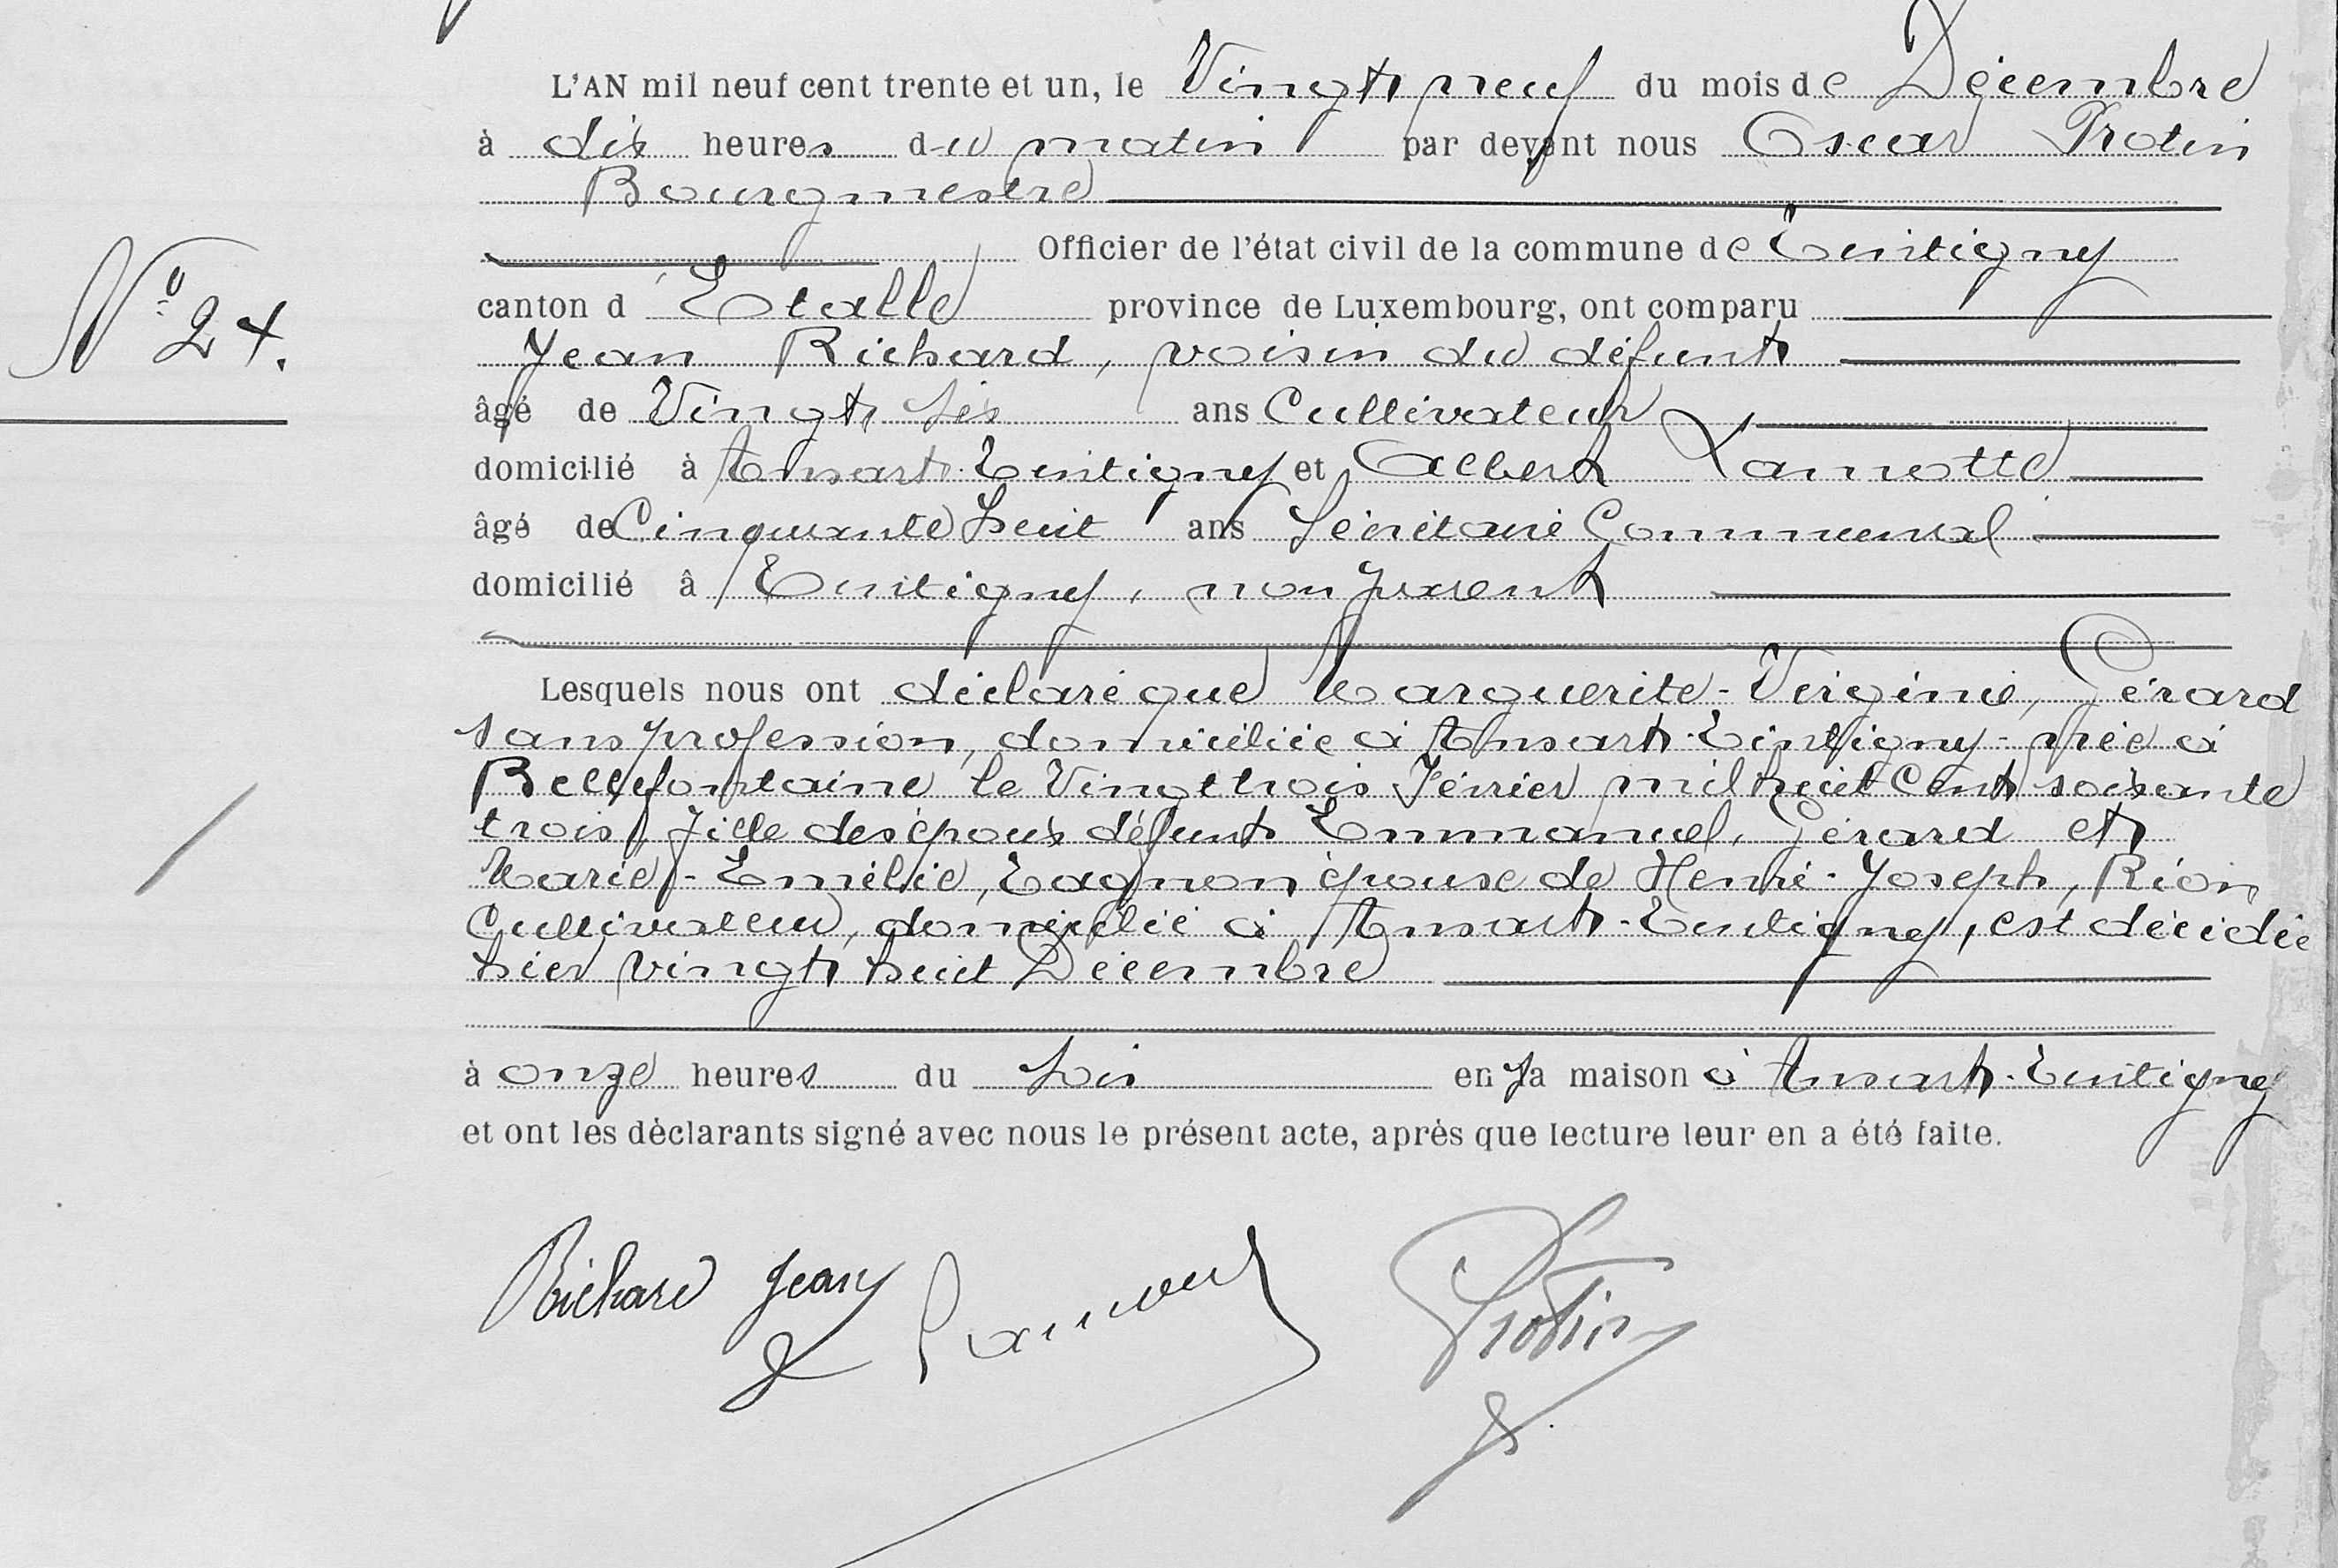 L'AN mil neuf cent trente et un, le Vingt neuf du mois de Décembre
à dix heures du matin par devant nous Oscar Protin
Bourgmestre
Officier de l'état civil de la commune de Tintigny
N° 24.
canton d'Etalle province de Luxembourg, ont comparu
Jean Richard, voisin du défunt
âgé de Vingt six ans Cultivateur
domicilié à Ansart-Tintigny et Albert Lamotte
âgé de Cinquante huit ans Secrétaire Communal
domicilié à Tintigny, non parent
Lesquels nous ont déclaré que Marguerite-Virginie, Gérard
sans profession, domiciliée à Ansart-Tintigny - née à
Bellefontaine le Vingt trois Février mil huit Cent soixante
trois, fille des époux défunts Emmanuel, Gérard et
Marie-Emélie, Tagnon épouse de Henri-Joseph, Rion
Cultivateur, domicilié à Ansart-Tintigny, est décédée
hier vingt huit Décembre
à onze heures du soir en sa maison à Ansart-Tintigny
et ont les déclarants signé avec nous le présent acte, après que lecture leur en a été faite.
Richard Jean Protin